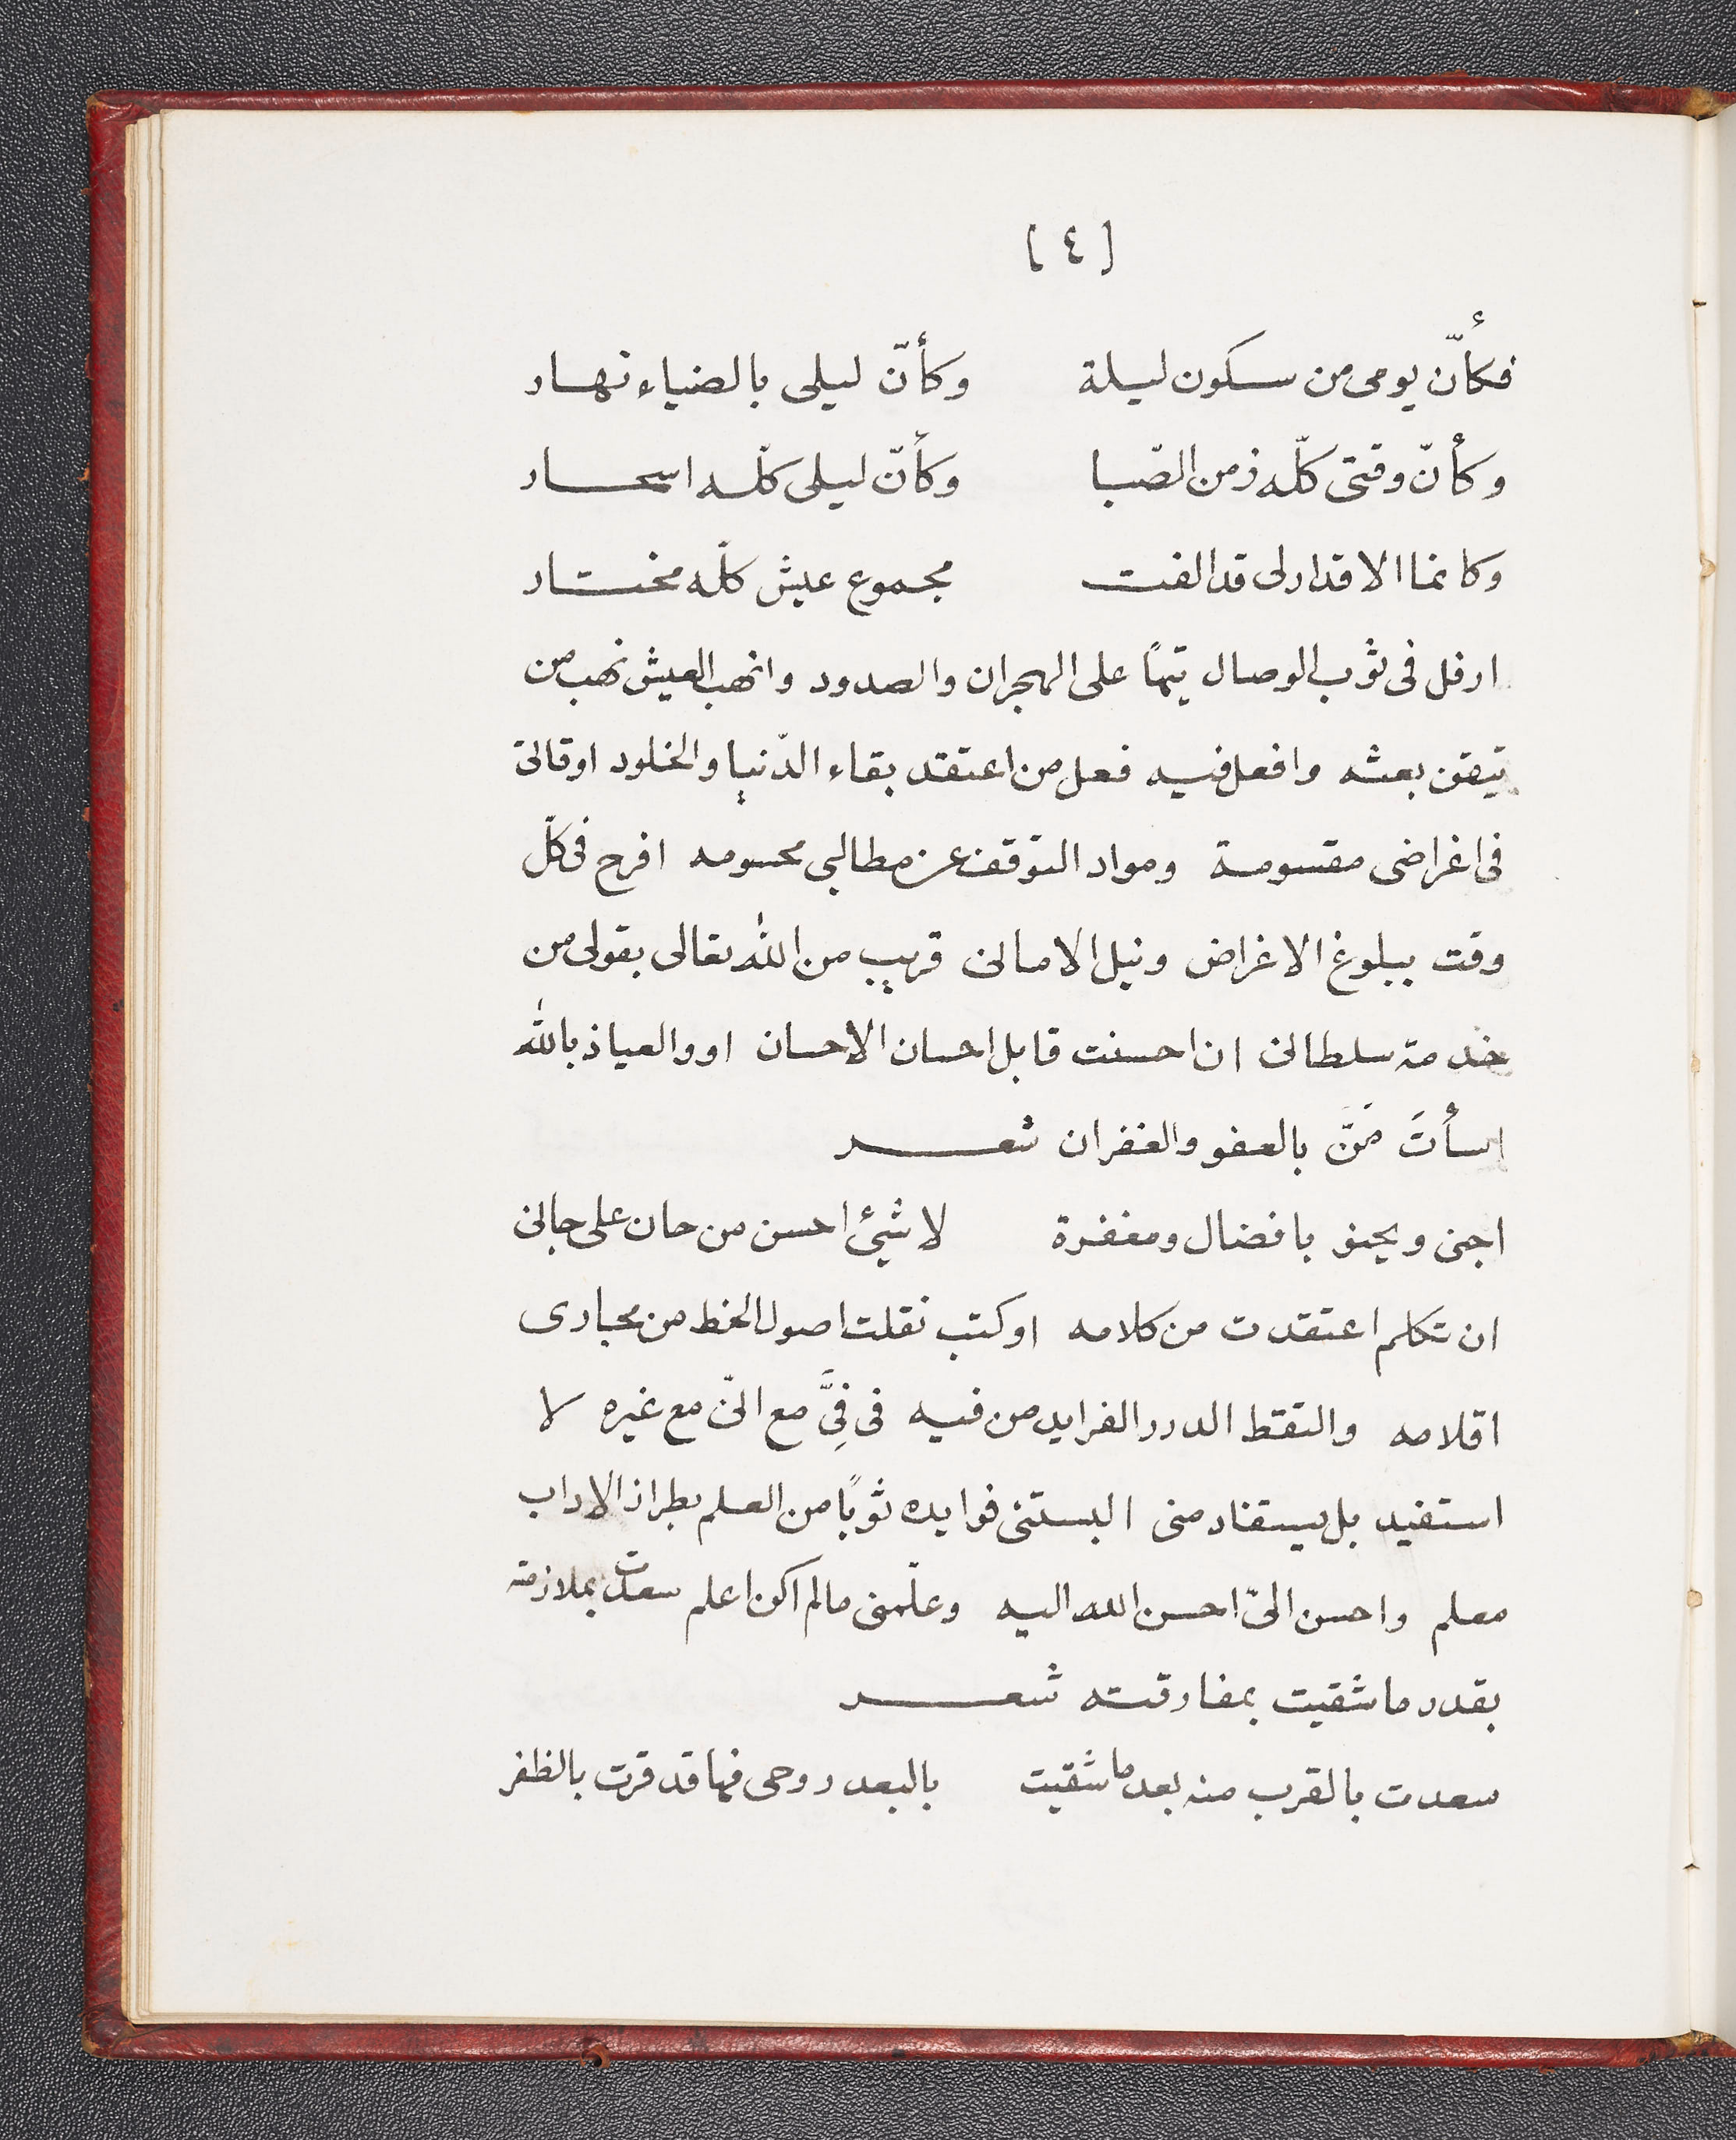 [٤]
فكأنّ يومى من سكون ليلة وكأنّ ليلى بالضياء نهار
وكأنّ وقتى كلّه زمن الصّبا وكأنّ ليلى كلّه اسحار
وكانما الاقدار لى قد الفت مجموع عيش كلّه مختار
ارفل فى ثوب الوصال تيهًا على الهجران والصدود وانهب العيش نهب من
تيقن بعثه وافعل فيه فعل من اعتقد بقاء الدّنيا والخلود اوقاتى
فى اغراضى مقسومة ومواد التوقف عن مطالبى محسومه افرح فى كلّ
وقت ببلوغ الاغراض ونيل الامانى قريب من الله تعالى بقولى من
خدمة سلطانى ان احسنت قابل احسان الاحسان او والعياذ بالله
اسأتَ مَنَّ بالعفو والغفران شعر
اجنى ويحنو بافضال ومغفرة لا شيئ احسن من حان على جانى
ان تكلم اعتقدت من كلامه او كتب نقلت اصول الخط من مجارى
اقلامه والتقط الدرر الفرايد من فيه فى فِىَّ مع انّى مع غيره لا
استفيد بل يستفاد منى البستنى فوايده ثوبًا من العلم بطراز الاداب
معلم واحسن الىّ احسن الله اليه وعلّمنى مالم اكن اعلم سعدت بملازمته
بقدر ما شقيت بمفارقته شعر
سعدت بالقرب منه بعد ما شقيت بالبعد روحى فها قد قرت بالظفر